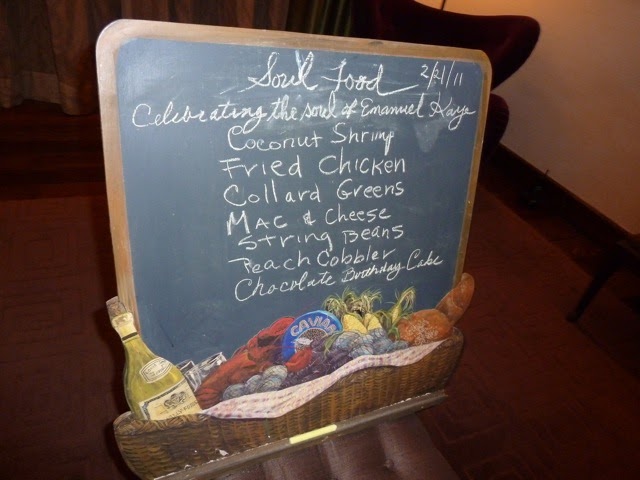 Soul Food 2/21/11
Celebrating the soul of Emanuel Kaye
Coconut Shrimp
Fried Chicken
Collard Greens
Mac & Cheese
String Beans
Peach Cobbler
Chocolate Birthday Cake
CAVIAR